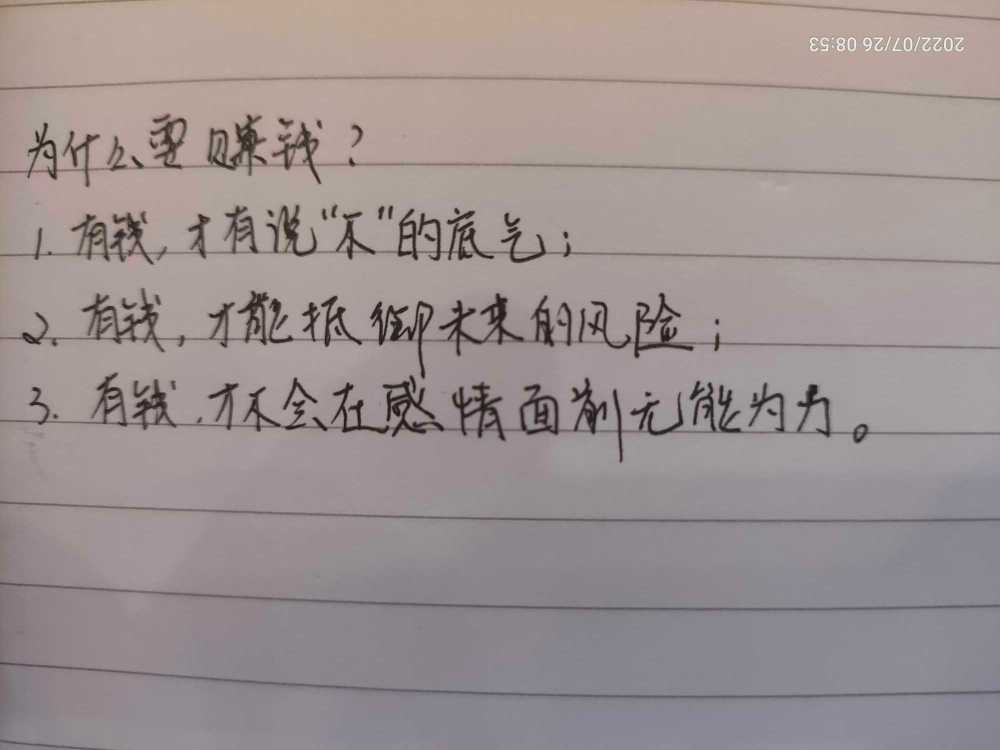 2022/07/26 08:53
为什么要赚钱？
1. 有钱，才有说“不”的底气；
2. 有钱，才能抵御未来的风险；
3. 有钱，才不会在感情面前无能为力。